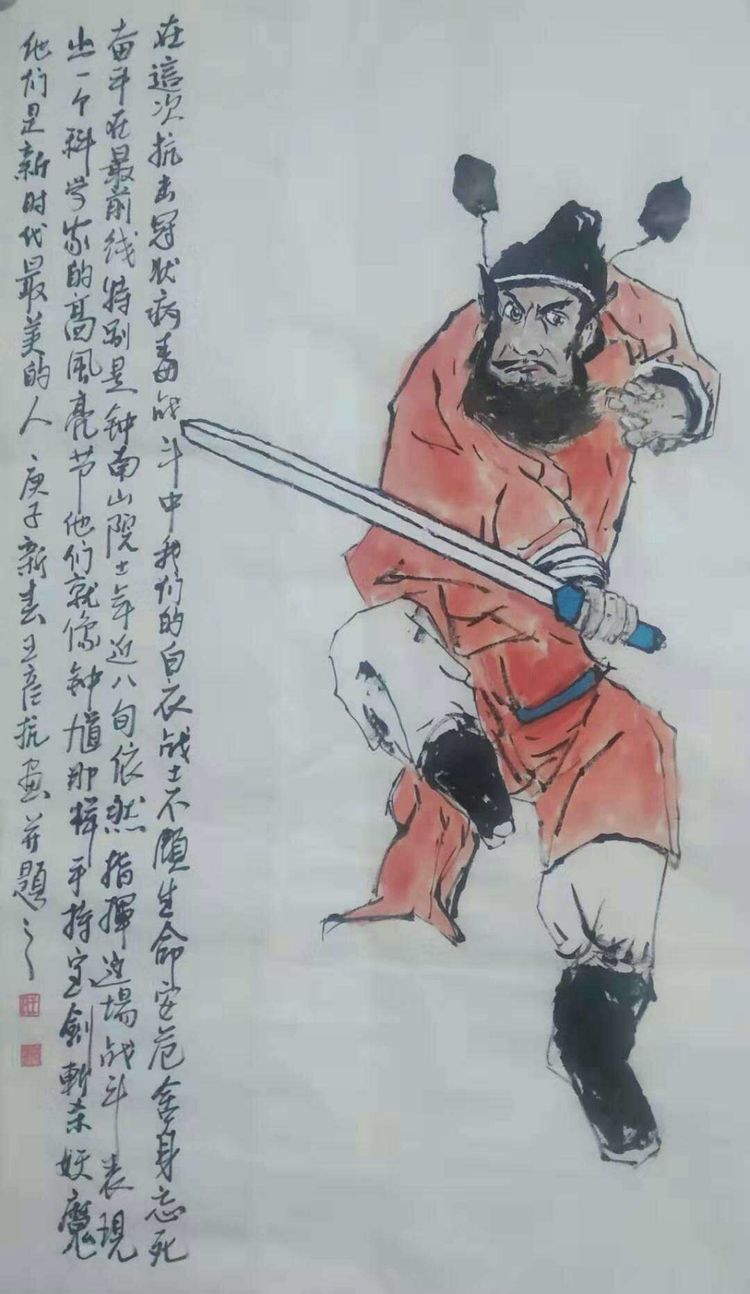 在這次抗击冠状病毒战斗中我们的白衣战士不顧生命安危舍身忘死
奋斗在最前线特别是钟南山院士年近八旬依然指揮这場战斗表現
出一个科学家的高風亮节他们就像钟馗那样手持宝劍斬杀妖魔
他们是新时代最美的人庚子新春王彦抗画并題之